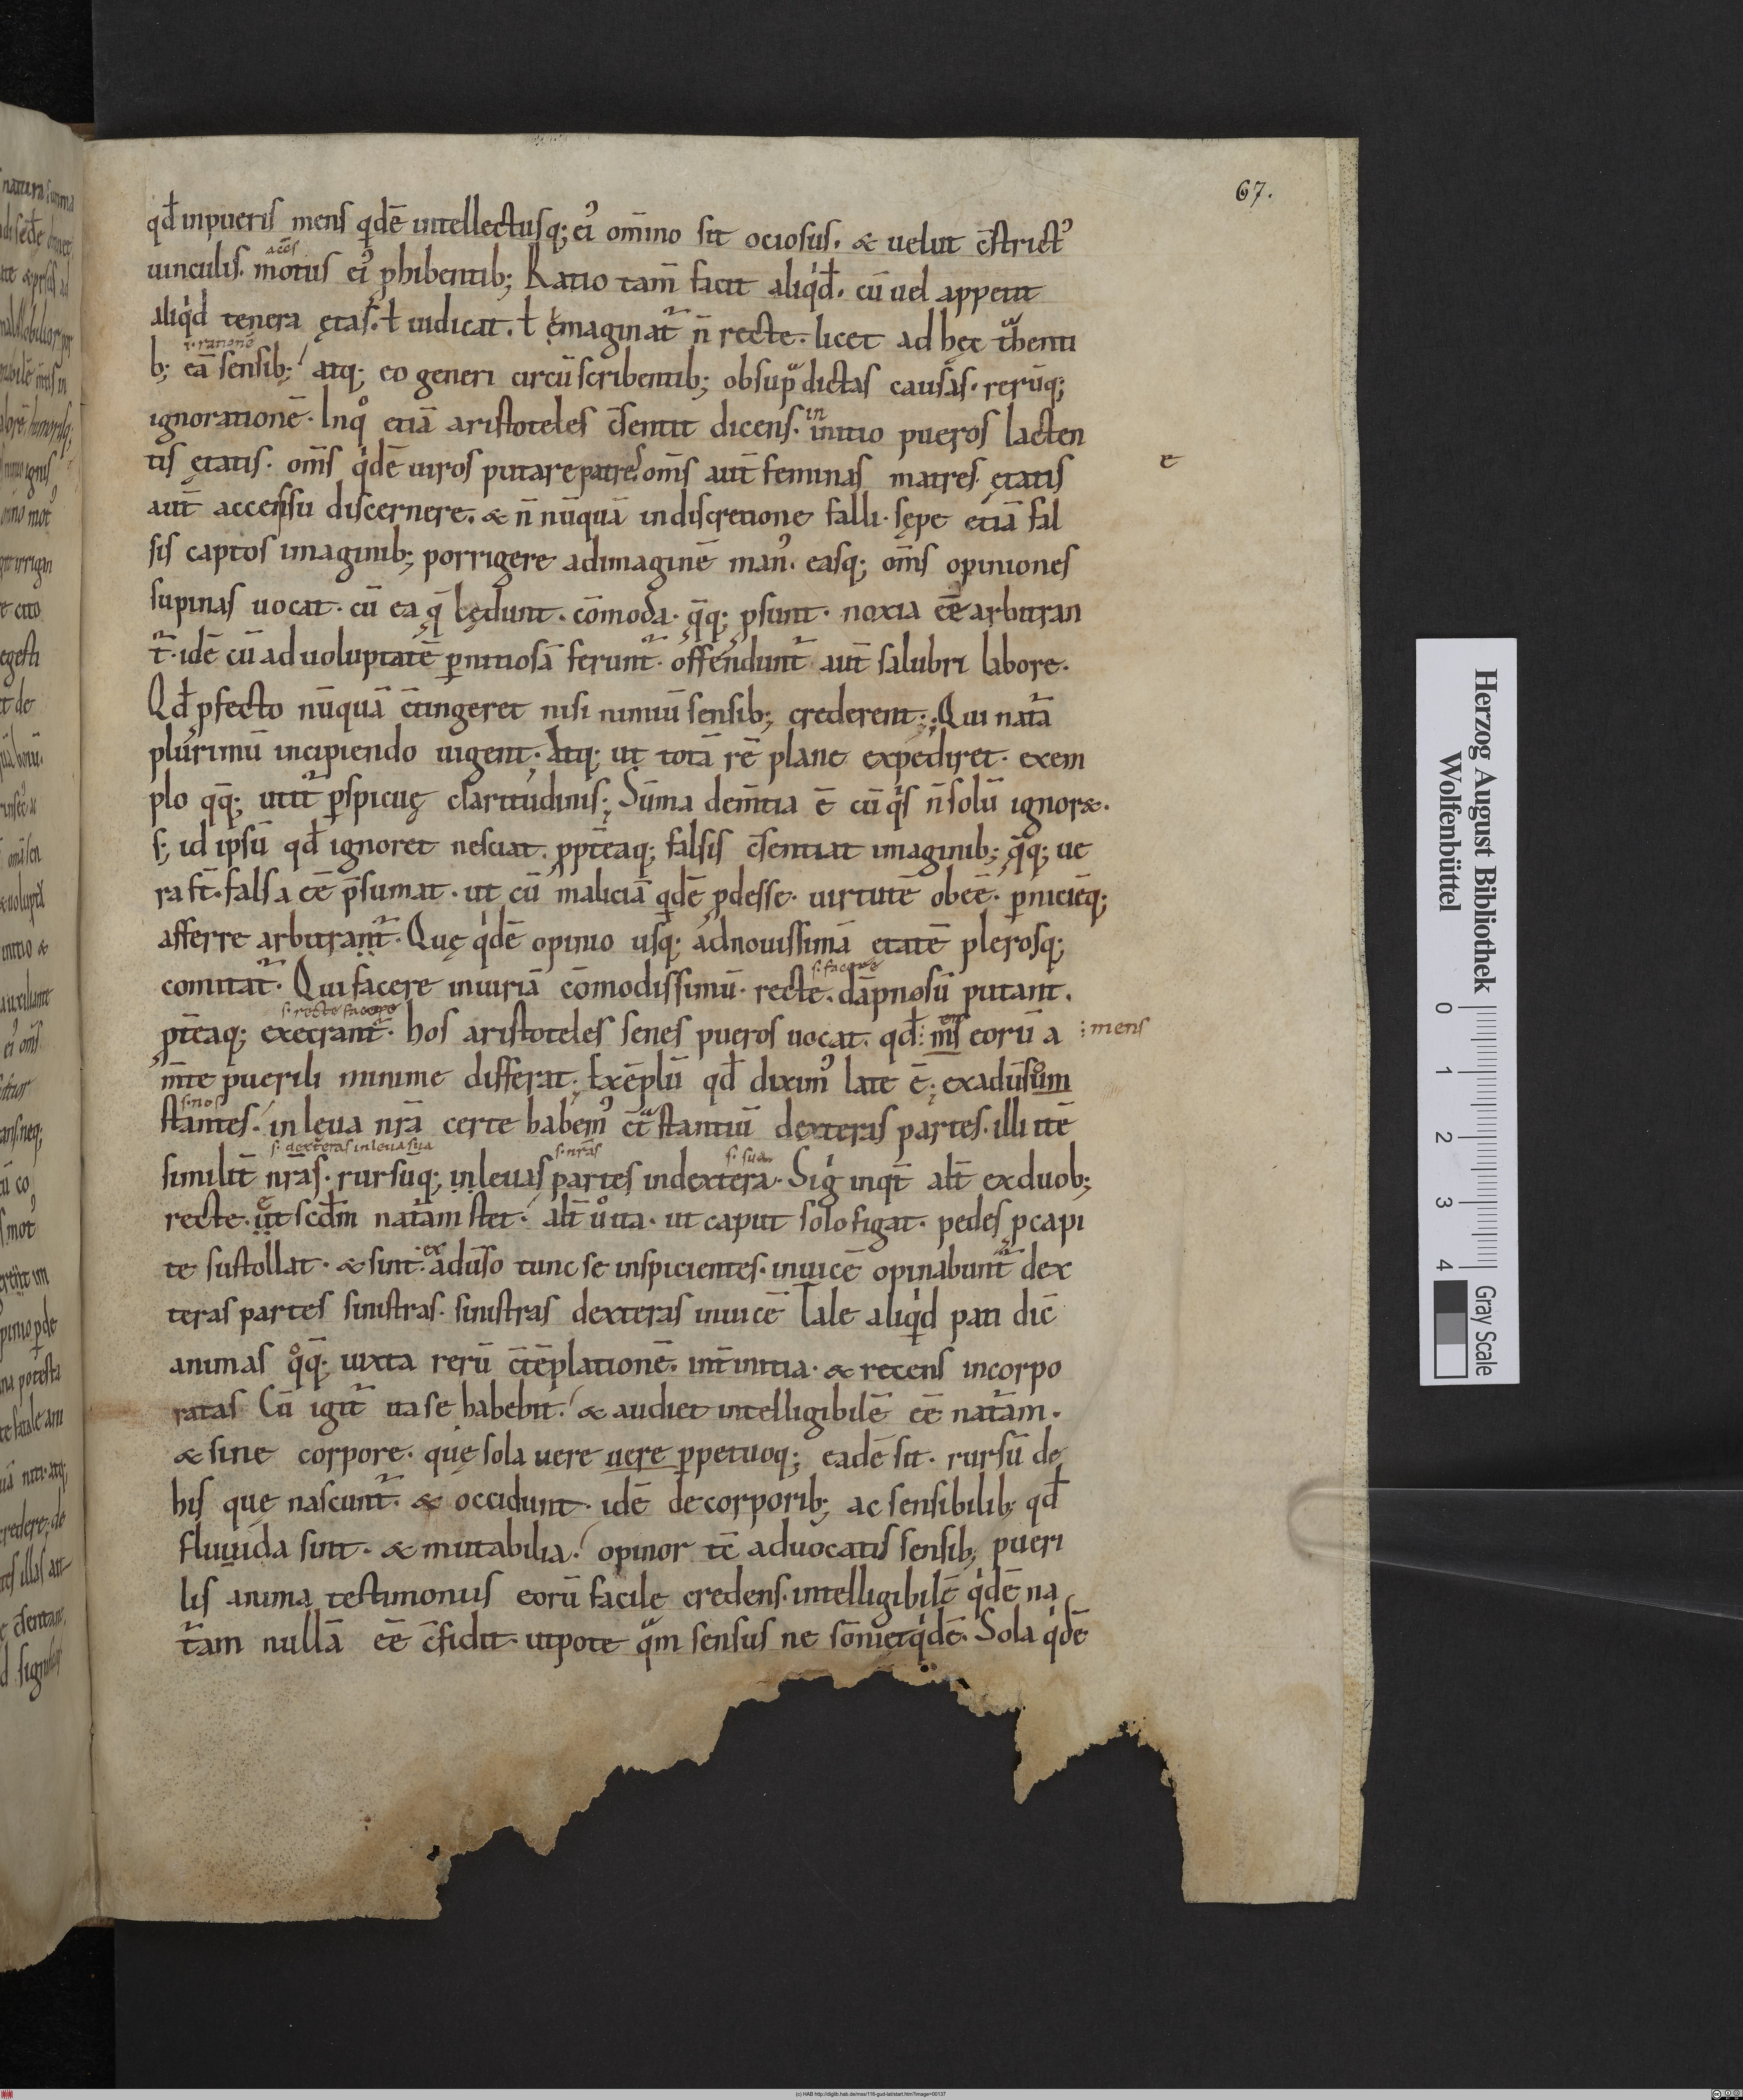 67.
qd̄ inpueris mens qdē intellectusq; ei᾽ om̄ino sit ociosus. & uelut c̄strict᾽
acēs
uinculis. motus ei᾽ phibentib; Ratio tam̄ facit aliqd̄. cū uel appetit
aliqd tenera ętas. ł iudicat. ł ęmaginat̄ n̄ recte. licet ad hęc thenti
.i. rationē
b; eā sensib; atq; eo generi circūscribentib; obsupdictas causas. rerūq;
ignorationē. Inqͦ etiā aristoteles c̄sentit dicens. initio pueros lacten
in
tis ętatis. om̄s qdē uiros putare patres. om̄s aut̄ feminas matres. ętatis
e
aut̄ accensu discernere. & n̄ nūquā indiscretione falli. sępe etiā fal
sis captos imaginib; porrigere adimaginē man᾽. easq; om̄s opiniones
supinas uocat. cū ea q̄ lędunt. cōmoda. q̄q; psunt. noxia eē arbitran
t̄. idē cū ad uoluptatē pnitiosā ferunt̄. offendunt̄ aut̄ salubri labore.
Qd̄ pfecto nūquā c̄tingeret nisi nimiū sensib; crederent; Qui natā
plurimū incipiendo uigent. Atq; ut totā rē plane expediret. exem
plo qq̄; utit̄ pspicuę claritudinis; Sūma dem̄tia ē cū qs n̄ solū ignoræ.
s; id ipsū qd̄ ignoret nesciat. ppt̄eaq; falsis c̄sentiat imaginib; q̄q; ue
ra st̄. falsa eē p̄sumat. ut cū maliciā qdē pdesse. uirtutē obeē. pniciēq;
afferre arbitrant̄. Quę qdē opinio usq; adnouissimā etatē plerosq;
s. facere
comitat̄. Qui facere iniuriā cōmodissimū. recte. dāpnosū putant.
s. recte facere
pt̄eaq; execrant̄. hos aristoteles senes pueros uocat. qd̄ : m̄s eorū a
: mens
m̄te puerili minime differat. Exēplū qd̄ dixim᾽ late ē; exadūsum
s. nos
stantes. in leua nr̄a certe habem᾽ c̄t stantiū dexteras partes. illi itē
s. dexteras inleua sua
s. nr̄as
s. sua
similit̄ nr̄as. rursūq; inleuas partes indextera. Sig inqt̄ alt̄ exduob;
recte. ut scd̄m natam stet. alt̄ uͦ ita. ut caput solo figat. pedes pcapi
te sustollat. & sint. adūso tunc se inspicientes. inuicē opinabunt̄ dex
ex
teras partes sinistras. sinistras dexteras inuicē Tale aliqd pati dic̄
animas qͦq̄; iuxta rerū c̄tēplationē. int̄ initia. & recens incorpo
ratas Cū igit̄ ita se habebit. & audiet intelligibilē eē natam.
& sine corpore. quę sola uere uere ppetuoq; eadē sit. rursū de
his quę nascunt̄. & occidunt. idē de corporib; ac sensibilib; qd̄
fluuida sint. & mutabilia. opinor tc̄ aduocatis sensib; pueri
lis anima testimoniis eorū facile credens. intelligibilē qdē na
tam nullā eē c̄fidit. utpote qm sensus ne sōnietqdē. Sola qdē
Herzog August Bibliothek
Wolfenbüttel
0 1 2 3 4
Gray Scale
(c) HAB http://diglib.hab.de/mss/116-gud-lat/start.htm?image=00137